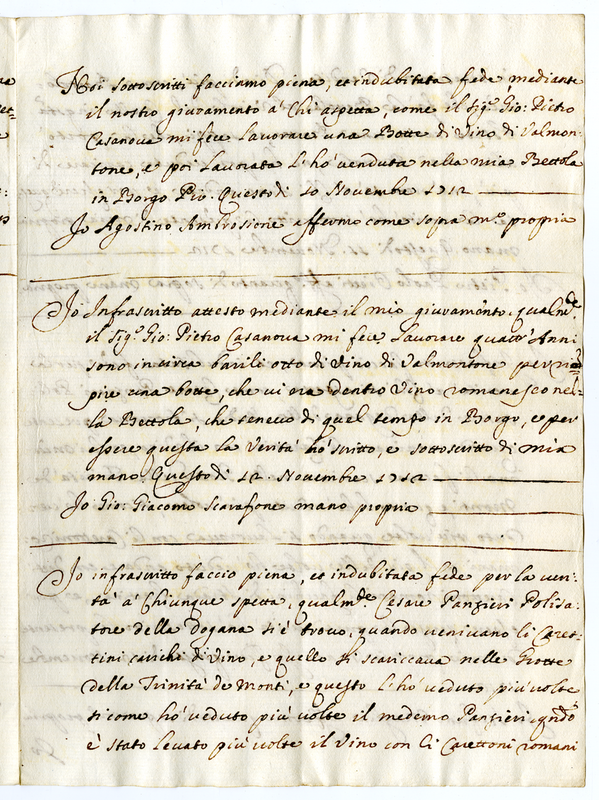 Noi sottoscritti facciamo piena, et indubitata fede mediante
il nostro giuramento à Chi aspetta, come il Sigr. Gio: Pietro
Casanova mi fece Lavorare una Botte di Vino di Valmon-
tone, e poi Lavorata l'hò venduta nella mia Bettola
in Borgo Pio. Questo dì 10 Novembre 1712
Io Agostino Ambrosione affermo come sopra mo. propria
Io Infrascritto attesto mediante il mio giuramto. qualmde.
il Sigr. Gio: Pietro Casanova mi fece Lavorare quattr'Anni
sono in circa barili otto di Vino di Valmontone per riẽ-
pire una botte, che vi era dentro Vino romanesco nel-
la Bettola, che tenevo di quel tempo in Borgo, e per
essere questa la Verità hò scritto, e sottoscritto di mia
mano. Questo dì 12. Novembre 1712
Io Gio: Giacomo Scarafone mano propria
Io infrascritto faccio piena, et indubitata fede per la veri-
tà à Chiunque spetta, qualmde. Cesare Panzieri Polisa-
tore della dogana si è trovo, quando venivano li Caret-
tini carichi di Vino, e quello si scaricava nelle Grotte
della Trinità de Monti, e questo l'hò veduto più volte
si come hò veduto più volte il medemo Panzieri, qndo
è stato levato più volte il Vino con li Carettoni romani